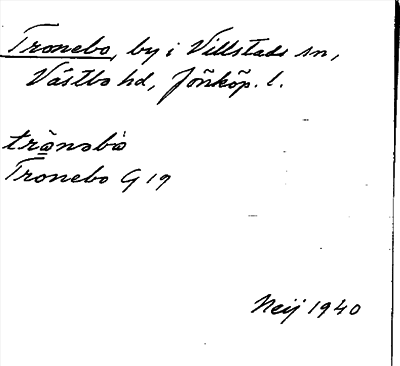 Tronebo, by i Villstads sn,
Västbo hd, Jönköp. l.
trånəbò
Tronebo G 19
Neij 1940